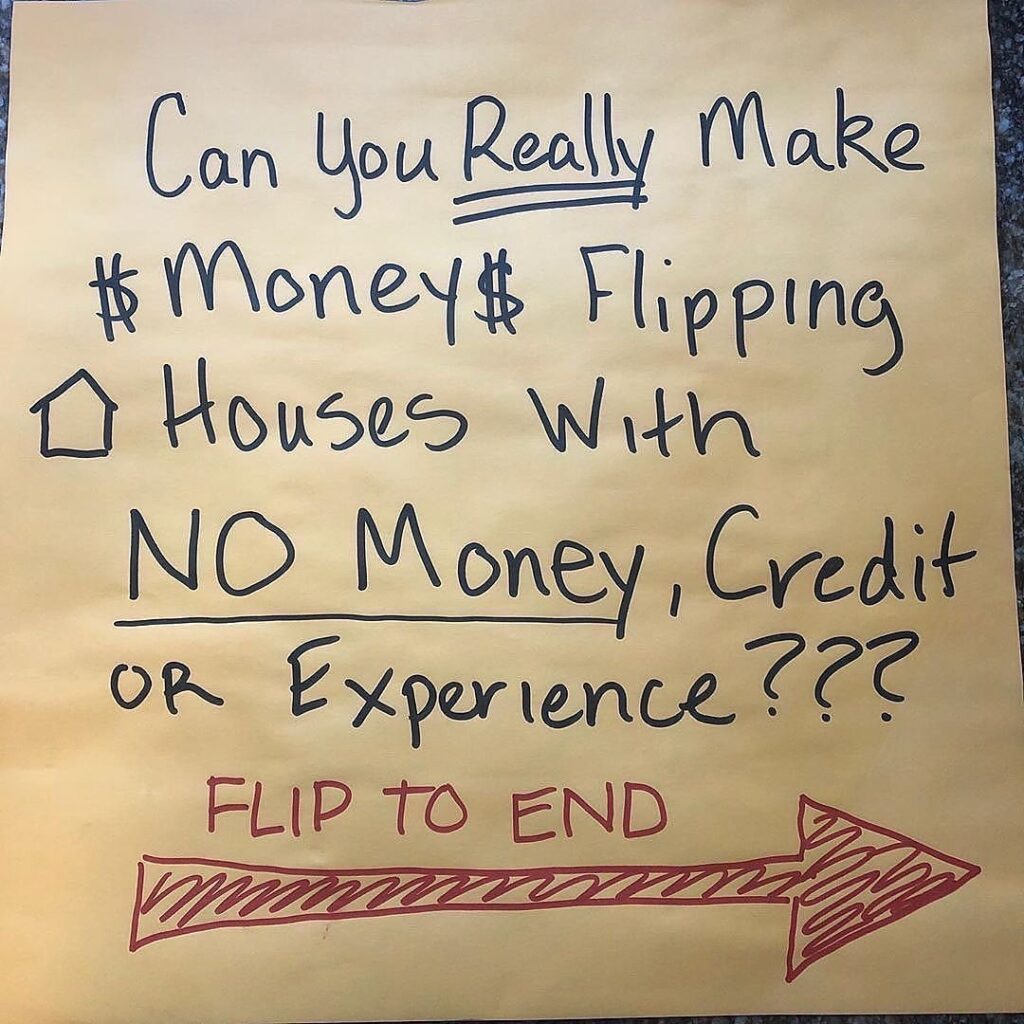 Can You Really Make
$Money$ Flipping
Houses With
NO Money, Credit
OR Experience???
FLIP TO END